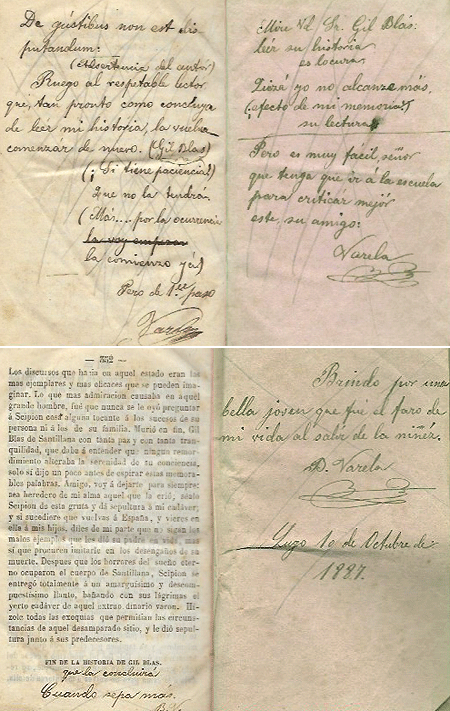 De gústibus non est dis-
putandum:
(Advertencia del autor)
Ruego al respetable lector
que, tan pronto como concluya
de leer mi historia, la vuelva
comenzar de nuevo. (Gil Blas)
(¡Si tiene paciencia!)
Que no la tendrá
(Más.... por la ocurrencia
la voy
la comienzo yá!)
Pero de 1.er paso
Varela
Mire Vd. Sr. Gil Blás:
leér su historia
es locura.
Quizá yo no alcance más,
(efecto de mi memoria?)
su lectura,
Pero es muy fácil, señor
que tenga que ir á la escuela
para criticar mejór
este, su amigo:
Varela
— 352 —
Los discursos que hacia en aquel estado eran los
mas ejemplares y mas eficaces que se pueden ima-
ginar. Lo que mas admiracion causaba en aquel
grande hombre, fué que nunca se le oyó preguntar
á Scipion cosa alguna tocante á los sucesos de su
persona ni á los de su familia. Murió en fin, Gil
Blas de Santillana con tanta paz y con tanta tran-
quilidad, que daba á entender que ningun remor-
dimiento alteraba la serenidad de su conciencia,
solo si dijo un poco antes de espirar estas memora-
bles palabras. Amigo, voy á dejarte para siempre;
sea heredero de mi alma aquel que la crió, séalo
Scipion de esta gruta y dá sepultura á mi cadáver;
y si sucediere que vuelvas á España, y vieres en
ella á mis hijos, diles de mi parte que no sigan los
malos ejemplos que les dió su padre en vida, mas
sí que procuren imitarle en los desengaños de su
muerte. Despues que los horrores del sueño eter-
no ocuparon el cuerpo de Santillana, Scipion se
entregó totalmente á un amarguísimo y descom-
puestísimo llanto, bañando con sus lágrimas el
yerto cadáver de aquel extraordinario varon. Hi-
zole todas las exequias que permitian las circuns-
tancias de aquel desamparado sitio, y le dió sepul-
tura junto á sus predecesores.
FIN DE LA HISTORIA DE GIL BLAS.
que la concluirá
Cuando sepa más.
Brindo por una
bella joven que fué el faro de
mi vida al salir de la niñez.
D. Varela
Lugo 10 de Octubre de
1887.